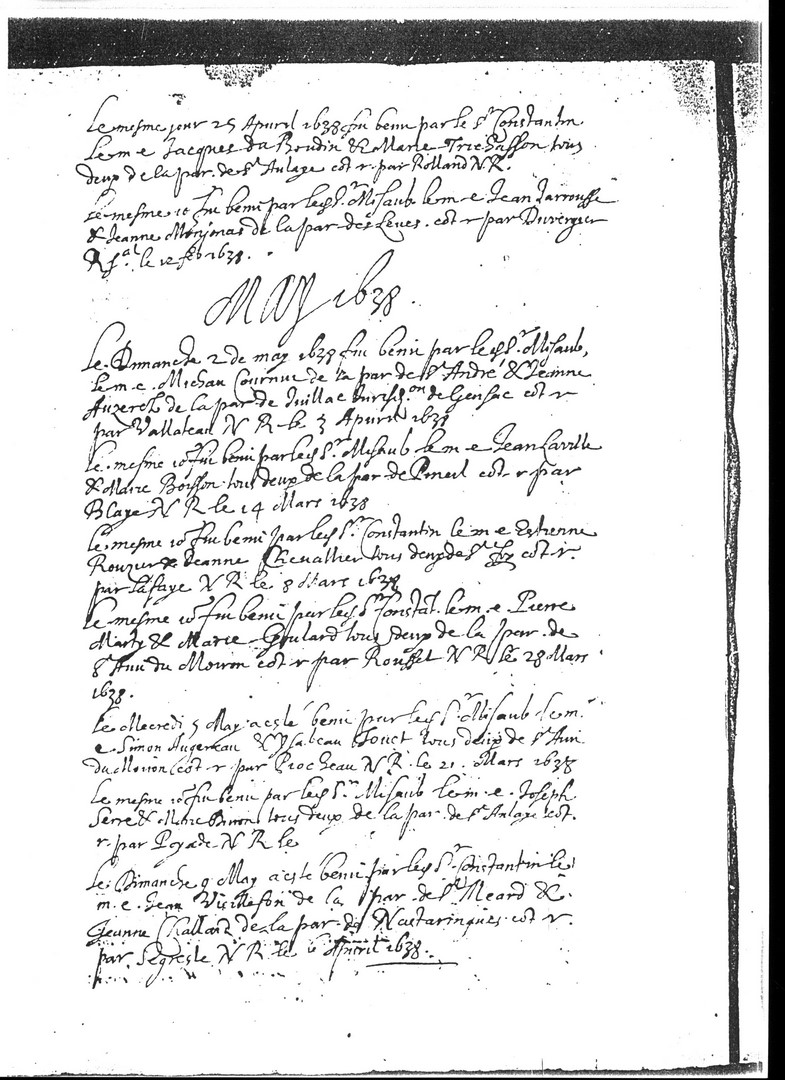 Le mesme jour 25 Apvril 1638 fu beni par le Sr Constantin
le m e Jacques da Boudin & Marie Trichasson tous
deux de la par. de St Aulaye cot r. par Rolland N. R.
Le mesme io fu beni par led Sr. Misaub le m e Jean Jarrousse
& Jeanne de la par des Leves. cot r par Duverger
le 12 feb 1638.
MAY 1638.
Le Dimanche 2 de may 1638 fu beni par led Sr. Misaub,
le m. e. Micheau Cournut de la par de St André & Jeanne
de la par. de Juillac Jurisd.on de Gensac cot r
par Vallateau N R le 3 Apvril 1638
Le mesme io fu beni par led Sr. Misaub le m e Jean Laville
& Marie Boisson tous deux de la par de Pineil cot r par
Blaye N R le 14 Mars 1638
Le mesme io fu beni par led Sr. Constantin le m e Estienne
Rouzur & Jeanne Chevallier tous deux de St cot r.
par Lafaye N R le 8 Mars 1638
Le mesme io fu beni par led Sr Constat. le m. e. Pierre
Marty & Marie Goulard tous deux de la par. de
St Avit du Moiron cot r par Rousset N R le 28 Mars
1638.
Le Mecredi 5 May a esté beni par led Sr. Misaub le m.
e Simon Augereau & Ysabeau Jouet tous deux de St Avi
du Moiron cot r par Brocheau N R. le 21. Mars 1638
Le mesme io fu beni par led Sr. Misaub le m. e. Joseph
Serre & Marie tous deux de la par. de St Aulaye cot.
r. par Peyade N R le
Le Dimanche 9 May a esté beni par led Sr. Constantin le
m. e. Jean Vieillefon de la par de St Meard &
Jeanne Challard de la par. de Nastaringues cot r.
par Segreste N R le 6 Apvril 1638.